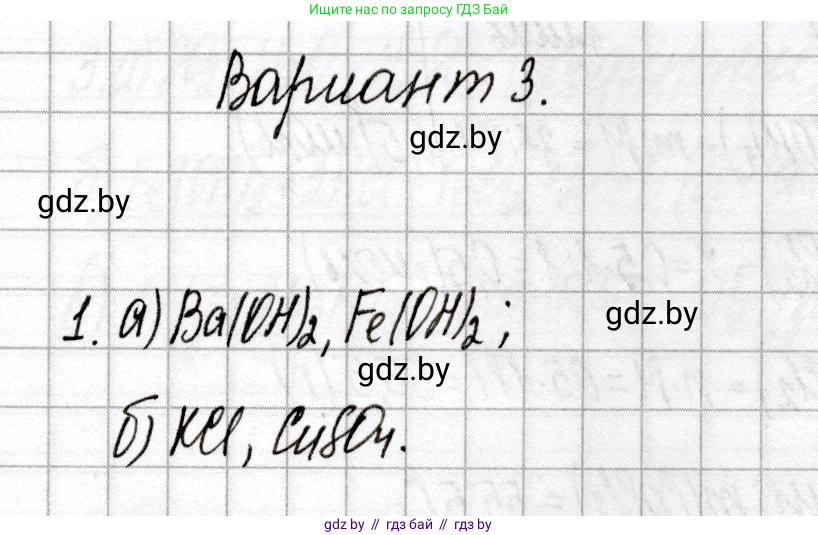 Ищите нас по запросу ГДЗ Бай
Вариант 3.
gdz.by
gdz.by
1. а) Ba(OH)₂, Fe(OH)₂;
gdz.by
gdz.by
б) KCl, CuSO₄.
gdz.by // гдз бай // гдз by